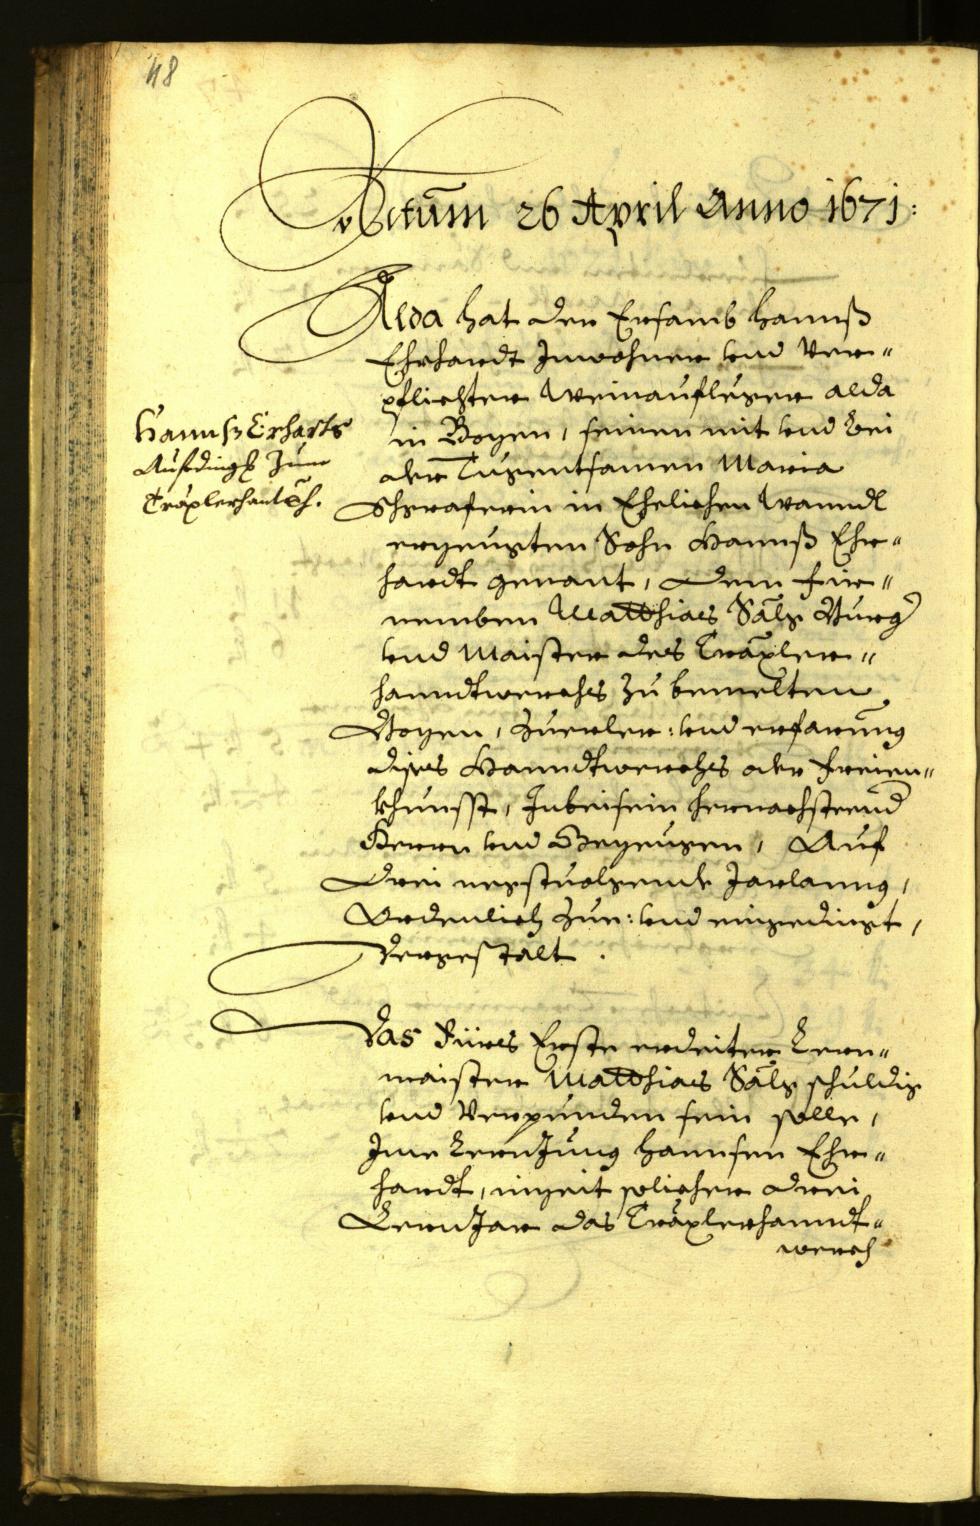 48
Actum 26 April Anno 1671:
Alda hat der Ersamb Hannß
Ehrhardt Inwohner vnd Ver-"
pflichter Weinaufleger alda
in Bozen, seinen mit vnd bei
der Tugentsamen Maria
Schgraferin in Ehelichen Stanndt
erzeugten Sohn Hannß Ehr-"
hardt genant, Dem Für-"
nemben Matthias Sälg Burg
vnd Maister des Träxler-"
hanndtwerchs zu bemelten
Bozen, Zuerler: vnd erfarung
dises Hanndtwerchs oder freien-"
khunsst, In beisein hernachsteend
Herrn vnd Gezeugen, Auf
Drei negstuolgende Jarlanng,
Ordenlich Zue: vnd eingedingt,
dergestalt.
Hannß Erharts
Aufding Zum
Träxlerhantwh.
Das Fürs Erste erdeiter Lern-"
maister Matthias Sälg schuldig
vnd Verpunden sein solle,
Ime Lern Jung Hannsen Ehr-"
hardt, in zeit solicher drei
Lern Jar das Träxlerhanndt-"
werch